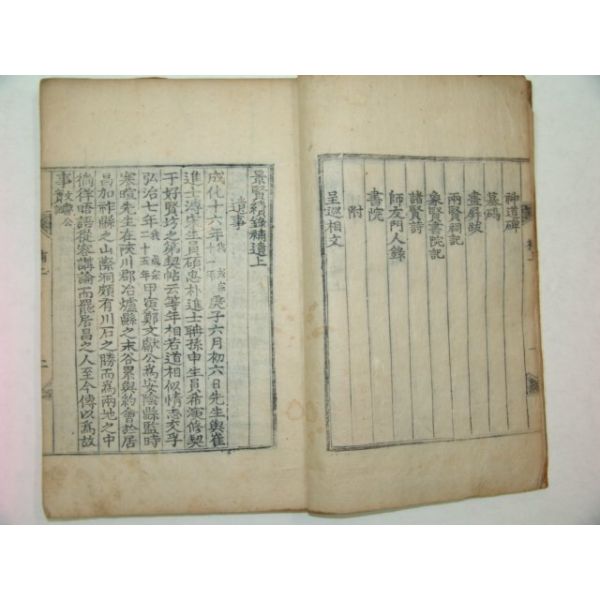 神道碑
墓碣
畫屛跋
兩賢祠記
象賢書院記
諸賢詩
師友門人錄
書院
附
呈巡相文
景賢續錄補遺上
遺事
成化十六年我 成宗十一年庚子六月初六日先生與崔
進士溥宋生員碩忠朴進士聃孫申生員希演修契
于好賢坊之第契帖云等年相若道相似情志交孚
弘治七年我 成宗二十五年甲寅鄭文獻公爲安陰縣監時
寒暄先生在陜川郡冶爐縣之末谷累與約會於居
昌加祚縣之山際洞頗有川石之勝而爲兩地之中
徜徉晤語從容講論而罷居昌之人至今傳以爲故
事文獻公